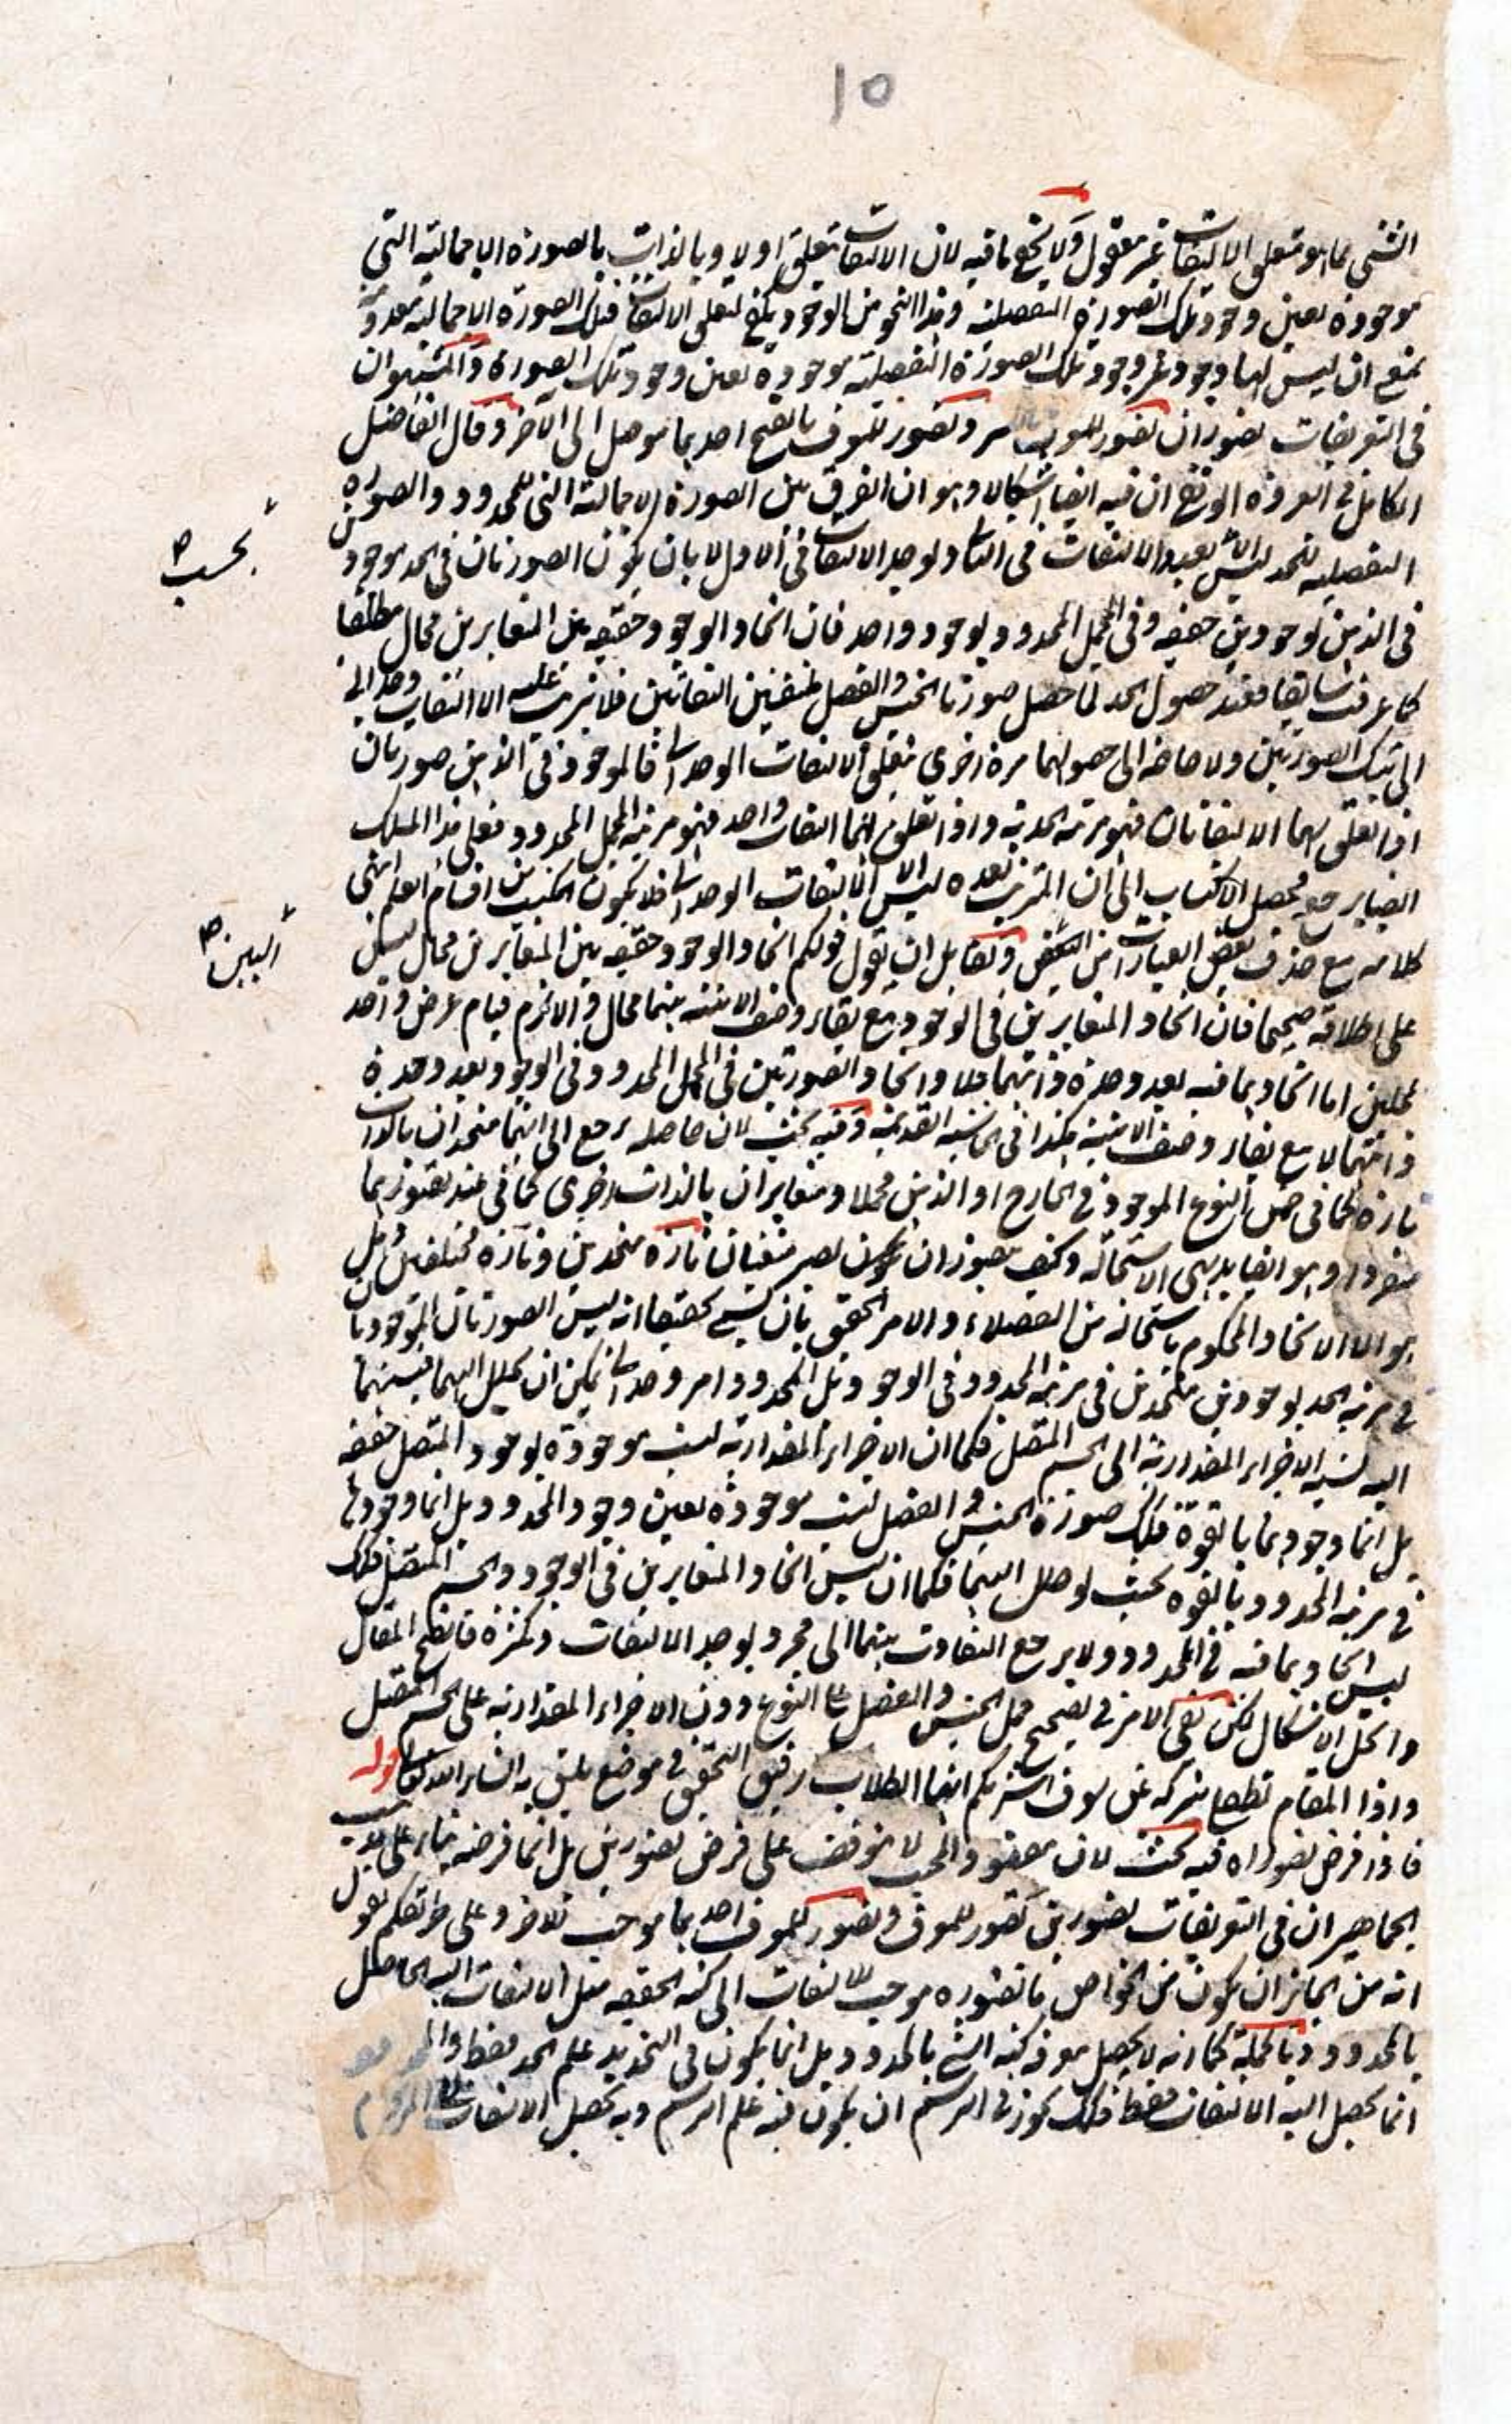 10
الشيء مما هو متعلق الالتفات غير معقول ولا يخفى ما فيه لان الالتفات يتعلق اولا وبالذات بالصورة الاجمالية التي
موجودة بعين وجود تلك الصورة التفصيلية وهذا النحو من الوجود يكفي لتعلق الالتفات فتلك الصورة الاجمالية
يمنع ان ليس لها وجود غير وجود تلك الصورة التفصيلية موجودة بعين وجود تلك الصورة والمشهور ان
في التعريفات تصوران تصور للمعرف بالكسر وتصور للمعرف بالفتح احدهما موصل الى الآخر وقال الفاضل
الكامل في العروة الوثقى ان فيه ايضا اشكالا وهو ان الفرق بين الصورة الاجمالية التي للمحدود والصورة
التفصيلية للحد ليس الا بتعدد الالتفات في الثاني وتوحد الالتفات في الاول لا بان يكون الصورتان في الحد موجودتين
بحسب
في الذهن بوجودين حقيقة وفي المجمل المحدود بوجود واحد فان اتحاد الوجود حقيقة بين المتغايرين محال مطلقا
كما عرفت سابقا فعند حصول الحد لما حصل صورتا الجنس والفصل ملتفتين التفاتين فلا يترتب عليه الا التفات وحداني
الى تينك الصورتين ولا حاجة الى حصولهما مرة اخرى فيتعلق الالتفات الوحداني فالموجود في الذهن صورتان
اذا تعلق بهما الالتفاتان فهو مرتبة الحدية واذا تعلق بهما التفات واحد فهو مرتبة المجمل المحدود فعلى هذا المسلك
ايضا يرجع محصل الاكتساب الى ان المترتب بعده ليس الا الالتفات الوحداني فلا يكون المكتسب من اقسام العلم انتهى
كلامه مع حذف بعض العبارات من البعض ولقائل ان يقول قولكم اتحاد الوجود حقيقة بين المتغايرين محال ليس
البين
على اطلاقه صحيحا فان اتحاد المتغايرين في الوجود مع بقاء وصف الاثنينية بينهما محال والا لزم قيام عرض واحد
بمحلين اما اتحادهما فيه بعد وحدة ذاتيهما فلا واتحاد الصورتين في المجمل المحدود في الوجود بعد وحدة
ذاتيهما لا مع بقاء وصف الاثنينية هكذا في الحاشية القديمة وفيه بحث لان حاصله يرجع الى انهما متحدان بالذات
تارة كما في ضمن النوع الموجود في الخارج او الذهن مجملا ومتغايران بالذات اخرى كما في عند تصورهما
منفردا وهو ايضا بديهي الاستحالة وكيف يجوز ان يكون تارة متحدين وتارة مختلفين هل
هو الا الاتحاد المحكوم باستحالته من الفضلاء والامر الحقيق بان يسمى تحقيقا انه ليس الصورتان الموجودتان
في مرتبة الحد بوجودين متحدين في مرتبة المحدود في الوجود بل المحدود امر وحداني يمكن ان يحلل اليهما فنسبتهما
اليه نسبة الاجزاء المقدارية الى الجسم المتصل فكما ان الاجزاء المقدارية ليست موجودة بوجود المتصل حقيقة
بل انما وجودها بالقوة فكذلك صورة الجنس والفصل ليست موجودة بعين وجود المحدود بل انما وجودها
في مرتبة المحدود بالقوة بحيث لو حلل اليهما فكما ان ليس اتحاد المتغايرين في الوجود والجسم المتصل فكذلك
ليس اتحادهما فيه في المحدود ولا يرجع التفاوت بينهما الى مجرد توحد الالتفات وتكثره فاتضح المقال
وانحل الاشكال لكن بقي الامر في تصحيح حمل الجنس والفصل على النوع دون الاجزاء المقدارية على الجسم المتصل
واذا المقام سوف ايها الطلاب رفيق التحقيق في موضع يليق به انشاء الله تعالى قوله
فاذا فرض تصوراه فيه بحث لان مقصود المجيب لا يتوقف على فرض تصورين بل انما فرضه بناء على مذهب
الجماهير ان في التعريفات تصورين تصور للمعرف وتصور للمعرف احدهما موجب للآخر وعلى طريقتكم نقول
انه من الجائز ان يكون من الخواص ما تصوره موجب للالتفات الى كنه الحقيقة مثل الالتفات اليه الحاصل
بالمحدود وبالجملة كما انه لا يحصل معرفة كنه الشيء بالمحدود بل انما يكون في التحديد علم الحد فقط والمحدود
انما يحصل اليه الالتفات فقط فكذلك يجوز في الرسم ان يكون فيه علم الرسم وبه يحصل الالتفات الى المرسوم